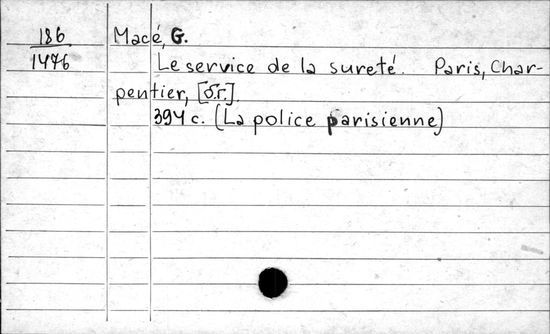 186
1476
Macé, G.
Le service de la sureté. Paris, Char-
pentier, [б.г.].
394 c. (La police parisienne)